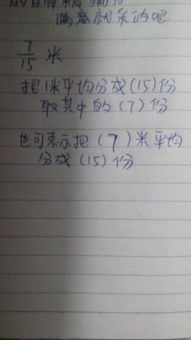 满意就采纳吧
7/15 米
把1米平均分成(15)份
取其中的(7)份
也可表示把(7)米平均
分成(15)份